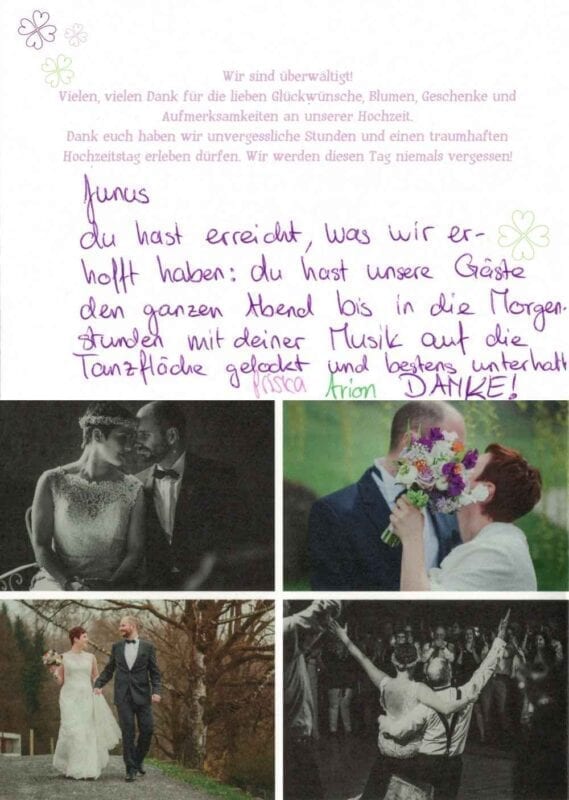 Wir sind überwältigt!
Vielen, vielen Dank für die lieben Glückwünsche, Blumen, Geschenke und
Aufmerksamkeiten an unserer Hochzeit.
Dank euch haben wir unvergessliche Stunden und einen traumhaften
Hochzeitstag erleben dürfen. Wir werden diesen Tag niemals vergessen!
Junus
du hast erreicht, was wir er-
hofft haben: du hast unsere Gäste
den ganzen Abend bis in die Morgen-
stunden mit deiner Musik auf die
Tanzfläche gelockt und bestens unterhalt
Priska Arion DANKE!